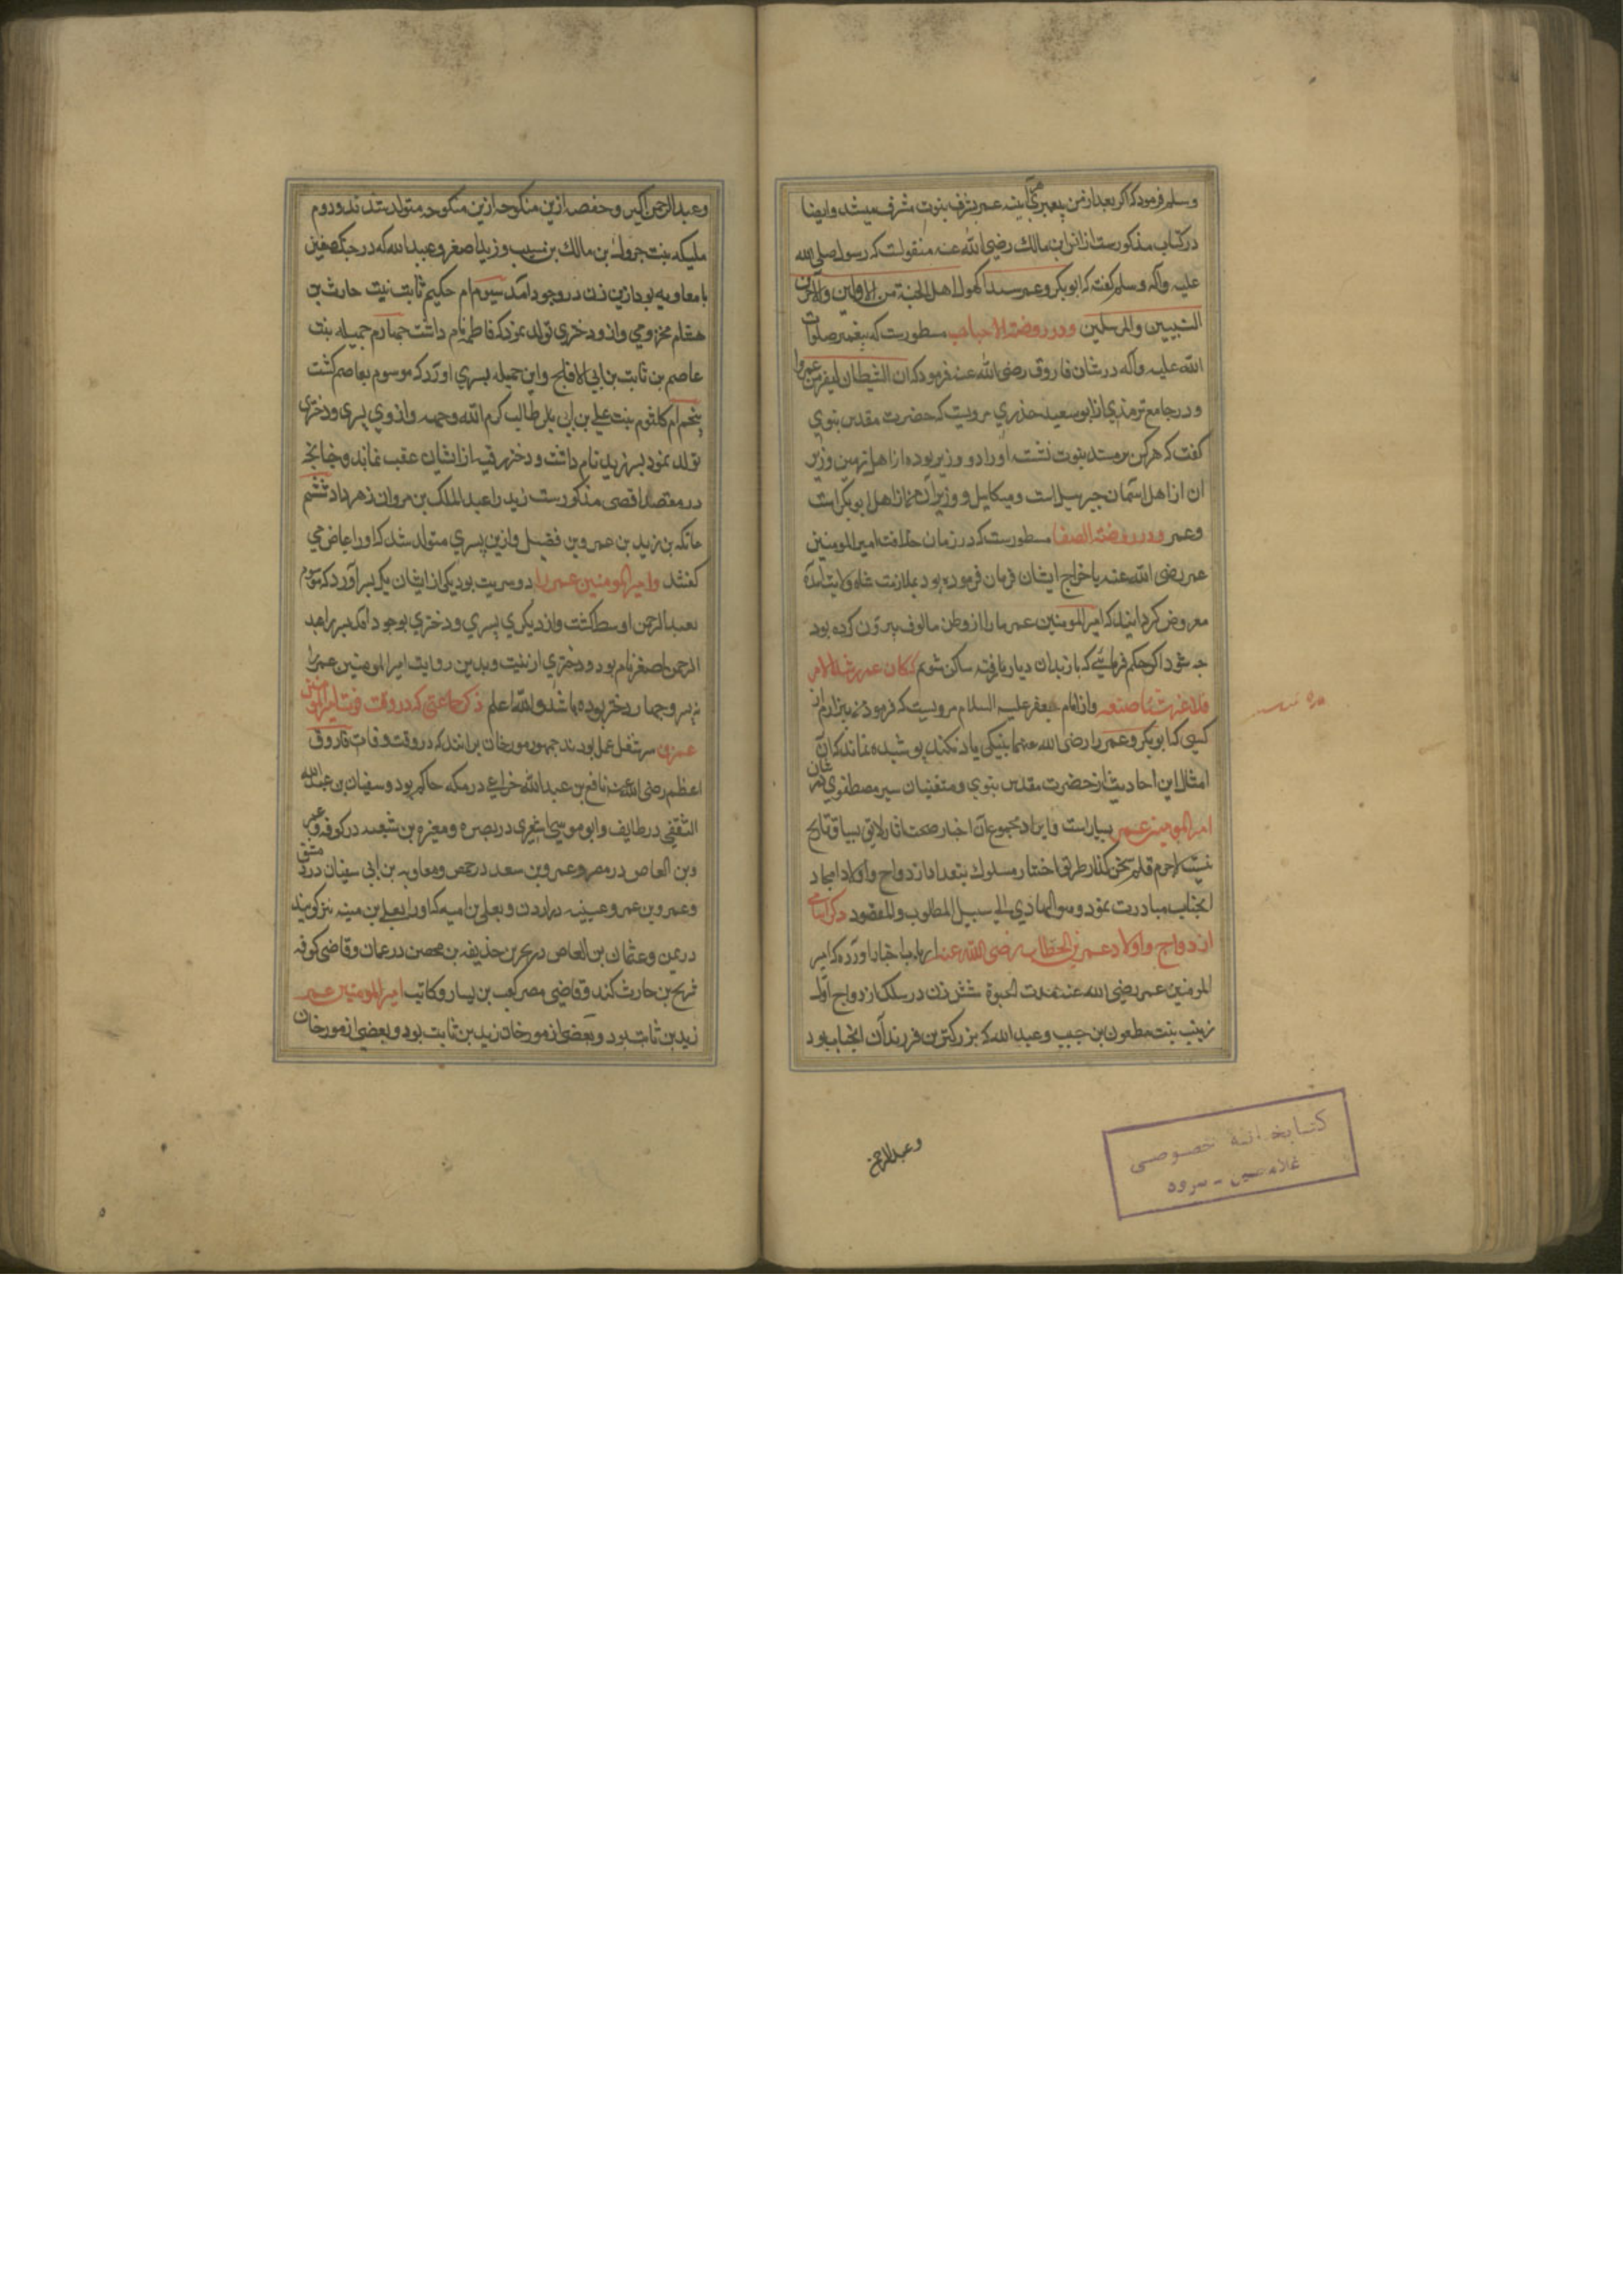 وسلم فرمود که اگر بعد از من پیغمبری آینه عمر بشرف بنوت مشرف میشد وایضا
در کتاب مذکور ست از انس ابن مالک رضی الله عنه منقولست که رسول صلی الله
علیه وآله وسلم گفت که ابوبکر وعمر سیدا کهول اهل الجنة من الاولین والآخرین
النبیین والمرسلین ودر روضة الاحباب مسطورست که پیغمبر صلوات
الله علیه وآله در شان فاروق رضی الله عنه فرمود که ان الشیطان لیفر من عمر
ودر جامع ترمذی از ابو سعید خدری مرویست که حضرت مقدس بنوی
گفت که هر کس بر مسند بنوت نشست او را دو وزیر بوده از اهل زمین وزیر
ان از اهل اسمان جبرییل است ومیکاییل و وزیران من از اهل ابوبکر است
وعمر ودر روضة الصفا مسطورست که در زمان خلافت امیر المومنین
عمر رضی الله عنه باخراج ایشان فرمان فرموده بود بملازمت شاه ولایت آمده
معروض گردانیدند که امیر المومنین عمر ما را از وطن مالوف بیرون کرده بود
چه شود اگر حکم فرمائی که باز بدان دیار رفته ساکن شویم کان عمر رشید الامر
فلا نغیر شیئا صنعه واز امام جعفر علیه السلام مرویست که فرمود من بیزارم از
کسی که ابوبکر وعمر را رضی الله عنهما بنیکی یاد نکند پوشیده نماند که از
امثال این احادیث از حضرت مقدس بنوی ومتفنیان سیر مصطفوی در شان
امیر المومنین عمر بسیار است وایراد مجموع آن اخبار صحت اثار لایق بسیاق تاریخ
نیست لاجرم قلم سخن گذار طریق اختصار مسلوک بتعداد ازدواج واولاد امجاد
انجناب مبادرت نمود وهو الهادی الی سبیل المطلوب والمقصود ذکر اسامی
ازدواج واولاد عمر بن الخطاب رضی الله عنه ارباب اخبار اورده که امیر
المومنین عمر رضی الله عنه بمدت الحیوة شش زن در سلک ازدواج اول
زینب بنت مظعون بن حبیب وعبد الله که بزرگترین فرزندان انجناب بود
وعبد الرحمن
کتابخانهٔ خصوصی
غلامحسین - سرود
وعبد الرحمن اکبر وحفصه ازین منکوحه ازین منکوحه متولد شدند ودوم
ملیکه بنت جرول بن مالک بن مسیب وزید اصغر وعبید الله که در جنگ صفین
با معاویه بود ازین زن در وجود آمد سیوم ام حکیم ثابت بنت حارث بن
هشام مخزومی واز ودختری تولد نمود که فاطمه نام داشت چهارم جمیله بنت
عاصم بن ثابت بن ابی الافلح واین جمیله پسری اورد که موسوم بعاصم گشت
پنجم ام کلثوم بنت علی بن ابی طالب کرم الله وجهه واز وی پسری ودختری
تولد نمود پسر زید نام داشت ودختر رقیه از ایشان عقب نماند وچنانچه
در مقصد اقصی مذکور ست زید را عبد الملک بن مروان زهر داد ششم
عاتکه بن زید بن عمرو بن فضیل وازین پسری متولد شد که او را عیاض می
گفتند وامیر المومنین عمر را دو سریت بود یکی از ایشان یک پسر آورد که موسوم
بعبد الرحمن اوسط گشت واز دیگری پسری ودختری بوجود آمد پسر را عبد
الرحمن اصغر نام بود ودختری ازینیت وبدین روایت امیر المومنین عمر را
نه پسر وچهار دختر بوده باشد والله اعلم ذکر جماعتی که در وقت فوت امیر المومنین
عمر بن سر شغل عمل بودند جمهور مورخان برانند که در وقت وفات فاروق
اعظم رضی الله عنه نافع بن عبد الله خزاعی در مکه حاکم بود وسفیان بن عبد الله
الثقفی در طایف وابو موسی اشعری در بصره ومغیره بن شعبه در کوفه وعمر
وبن العاص در مصر وعمرو بن سعد در حمص ومعاویه بن ابی سفیان در دمشق
وعمرو بن عمر وعیینه در اردن ویعلی بن امیه که او را یعلی بن منیه نیز گویند
در یمن وعثمان بن العاص در بحرین حذیفه بن محصن در عمان وقاضی کوفه
شریح بن حارث کندی وقاضی مصر کعب بن یسار وکاتب امیر المومنین عمر
زید بن ثابت بود وبعضی از مورخان زید بن ثابت بود وبعضی از مورخان